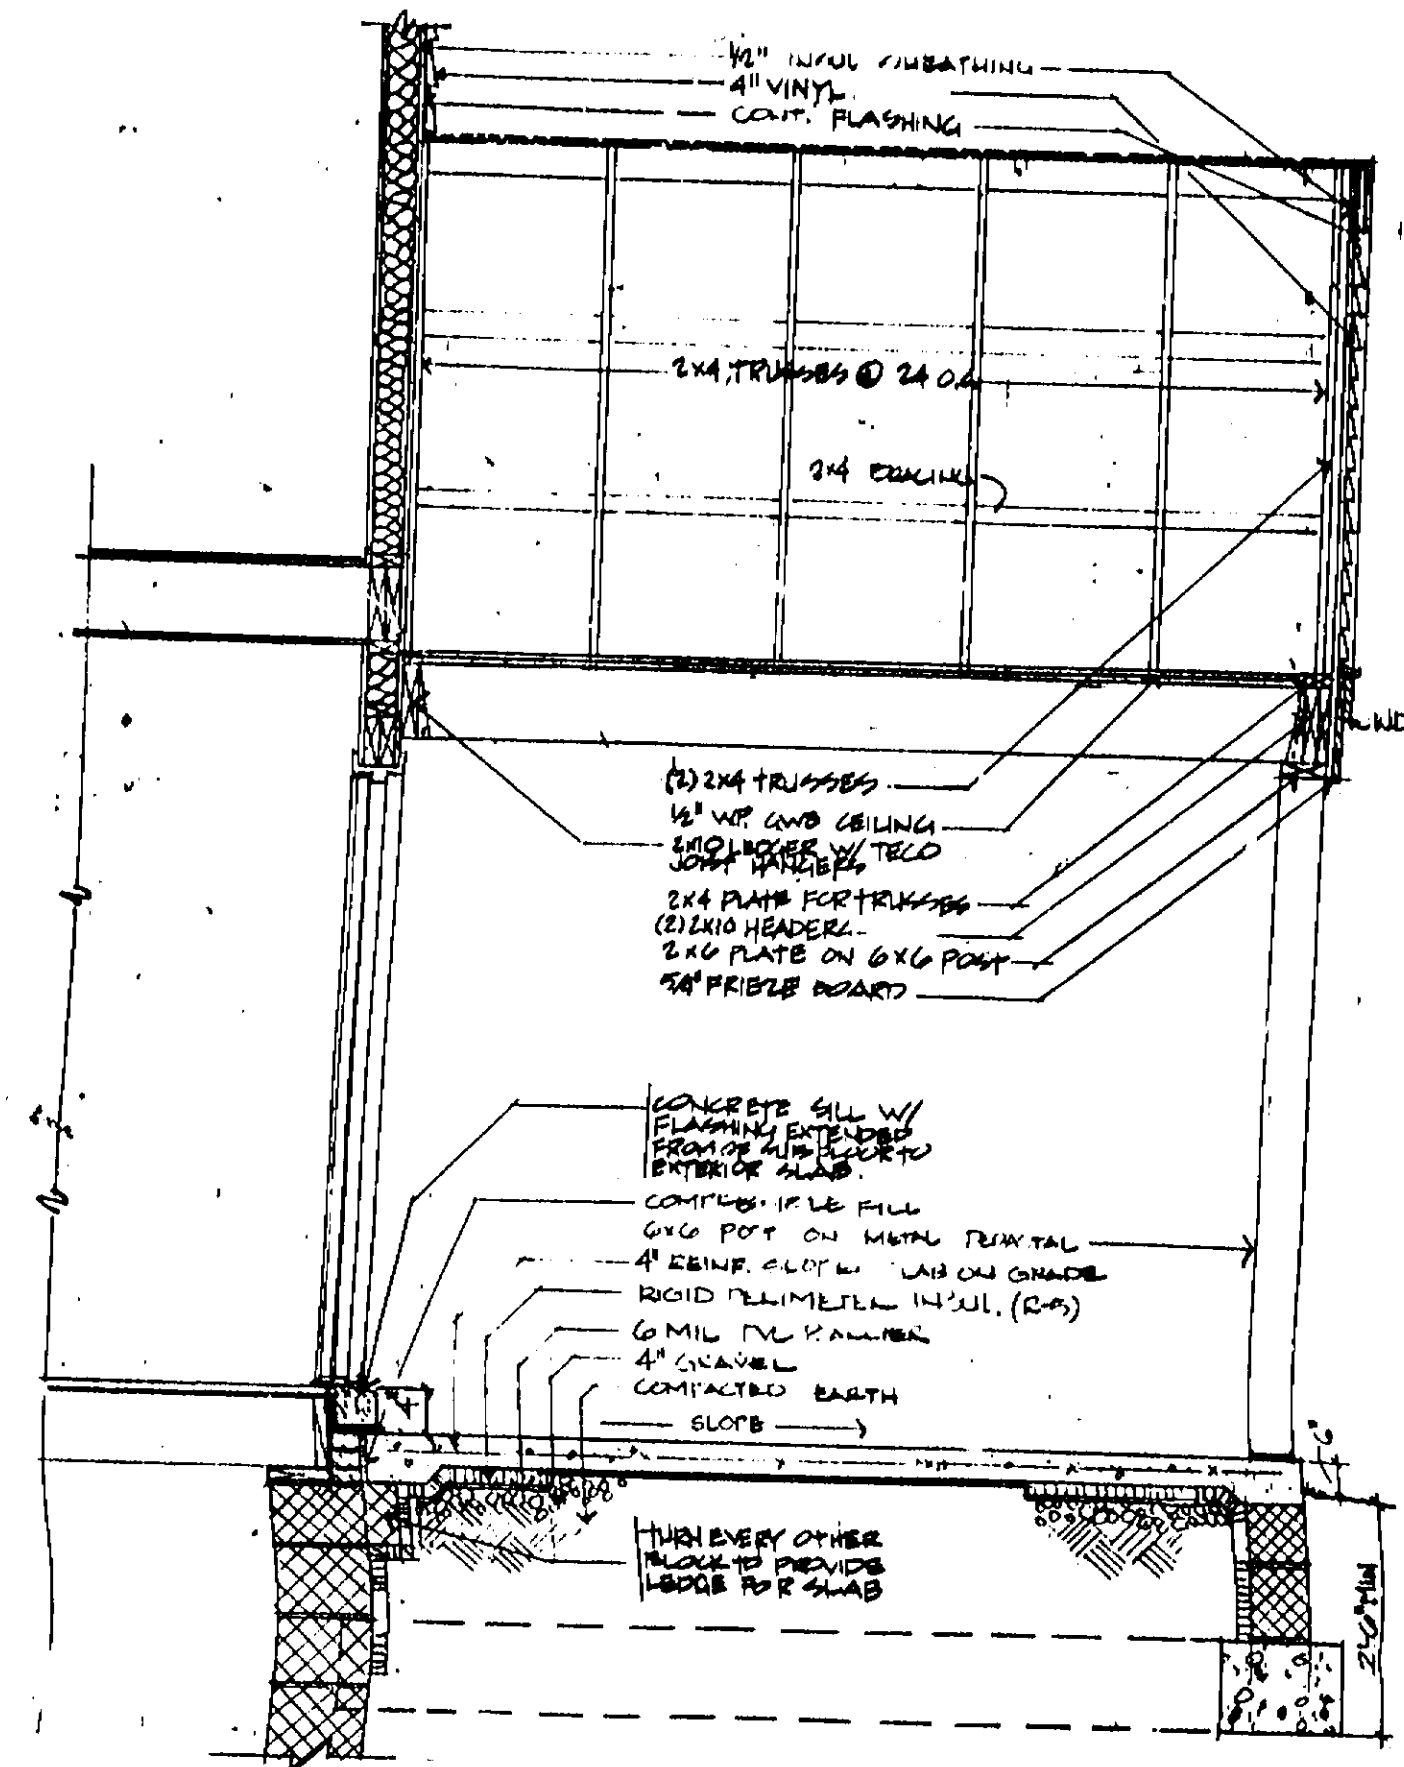 1/2" INSUL SHEATHING
4" VINYL
CONT. FLASHING
2X4 TRUSSES @ 24 O.C
2X4 BRACING
(2) 2X4 TRUSSES
1/2" WP. GWB CEILING
2X10 LEDGER W/ TECO
JOIST HANGERS
2X4 PLATE FOR TRUSSES
(2) 2X10 HEADERS
2X6 PLATE ON 6X6 POST
5/4" FRIEZE BOARD
CONCRETE SILL W/
FLASHING EXTENDED
FROM SUBFLOOR TO
EXTERIOR SLAB.
FILL
6X6 POST ON METAL PEDESTAL
4" REINF. SLOPED SLAB ON GRADE
RIGID PERIMETER INSUL. (R-5)
6 MIL BARRIER
4" GRAVEL
COMPACTED EARTH
SLOPE
4
6"
TURN EVERY OTHER
BLOCK TO PROVIDE
LEDGE FOR SLAB
2'-6" MIN